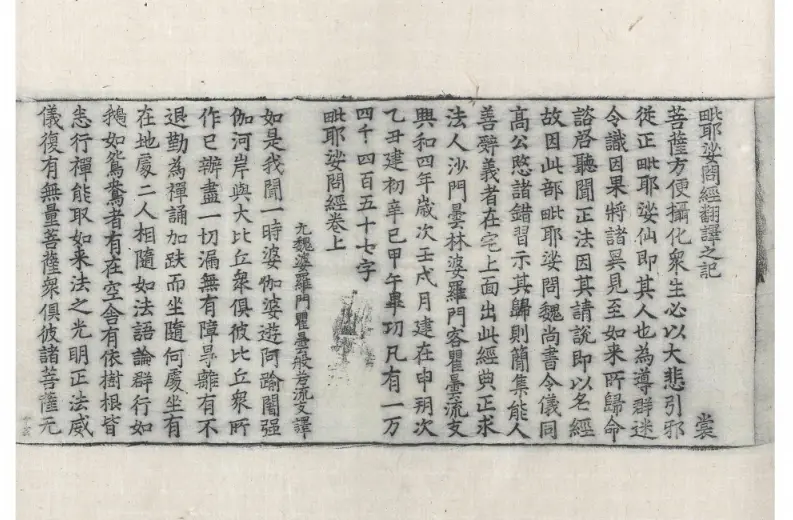 毗耶娑問經翻譯之記 裳
菩薩方便攝化衆生必以大悲引邪
從正毗耶娑仙即其人也為導群迷
令識因果將諸異見至如来所歸命
諮啓聽聞正法因其請說即以名經
故因此部毗耶娑問魏尚書令儀同
髙公愍諸錯習示其歸則簡集能人
善辭義者在宅上面出此經典正求
法人沙門曇林婆羅門客瞿曇流支
興和四年歲次壬戌月建在申朔次
乙丑建初辛巳甲午畢功凡有一万
四千四百五十七字
毗耶娑問經卷上
元魏婆羅門瞿曇般若流支譯
如是我聞一時婆伽婆遊阿踰闍强
伽河岸與大比丘衆俱彼比丘衆所
作已辦盡一切漏無有障㝵離有不
退勤為禪誦加趺而坐隨何處坐有
在地處二人相隨如法語論群行如
鵝如鴛鴦者有在空舍有依樹根皆
悉行禪能取如来法之光明正法威
儀復有無量菩薩衆俱彼諸菩薩无